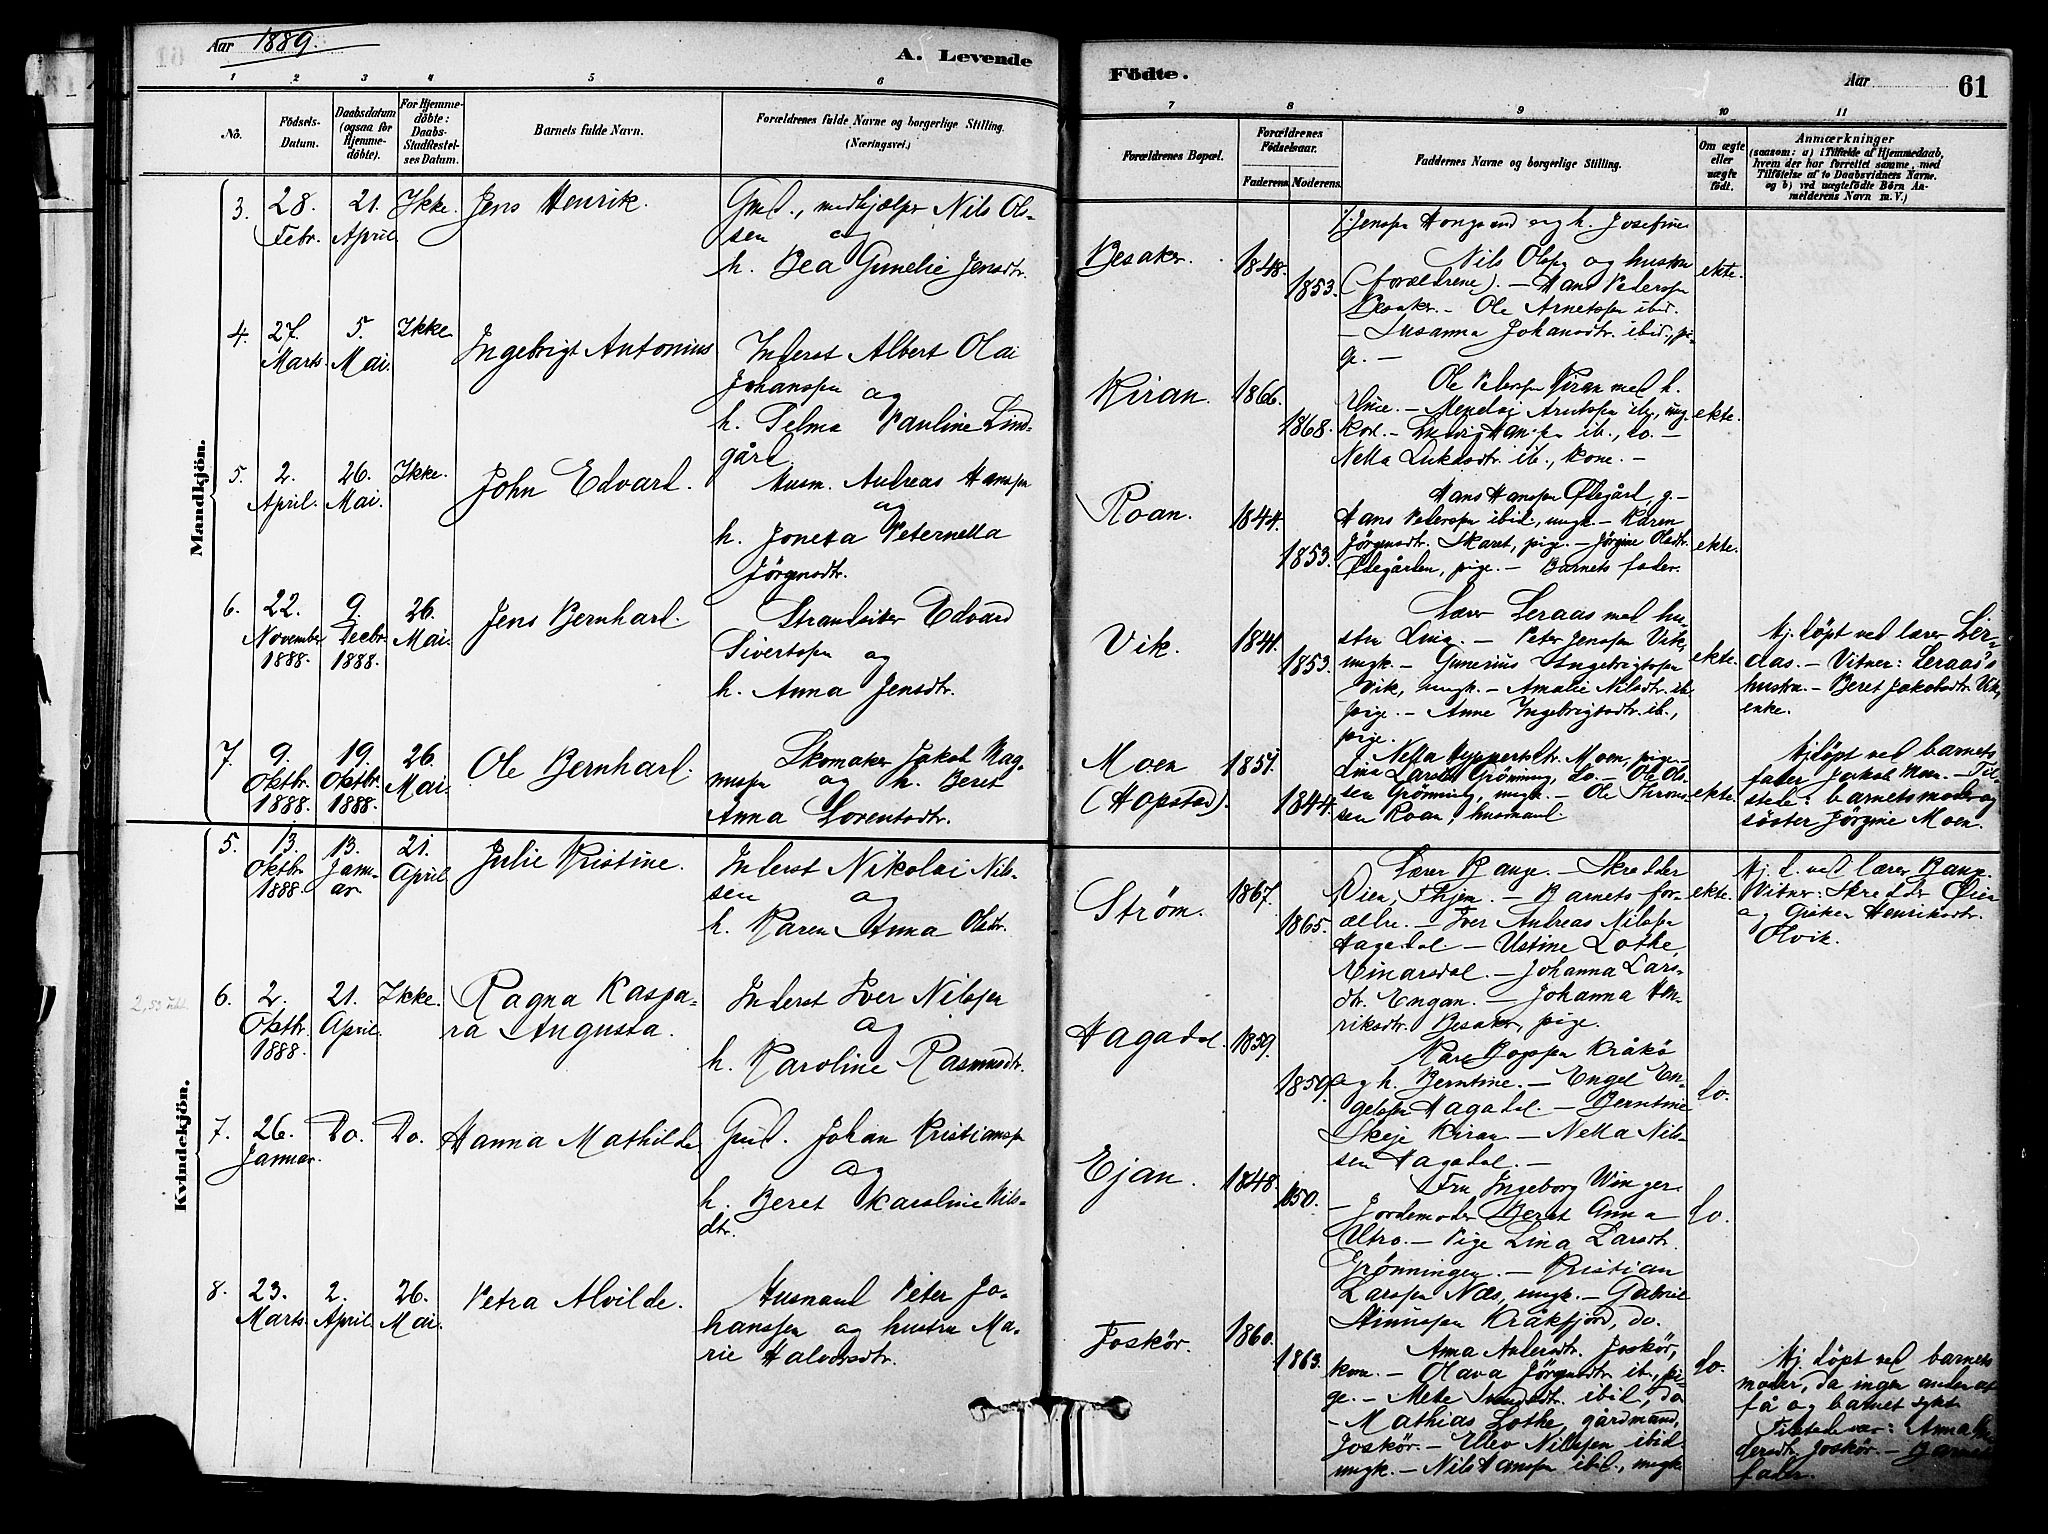 Aar 1889.
A. Levende
Födte.
Aar
61
1
2
3
4
5
6
7
8
9
10
11
No.
Födsels-
Datum.
Daabsdatum
(ogsaa for
Hjemme-
döbte).
For Hjemme-
döbte:
Daabs-
Stadfæstel-
ses Datum.
Barnets fulde Navn.
Forældrenes fulde Navne og borgerlige Stilling.
(Næringsvei.)
Forældrenes Bopæl.
Forældrenes
Födselsaar.
Faderens.
Moderens.
Faddernes Navne og borgerlige Stilling.
Om ægte
eller
uægte
födt.
Anmærkninger
(saasom: a) i Tilfælde af Hjemmedaab,
hvem der har forrettet samme, med
Tilföielse af to Daabsvidners Navne.
og b) ved uægtefödte Börn An-
melderens Navn m. V.)
Mandkjön.
3.
28.
Febr.
21.
April
Ikke.
Jens Henrik.
Gmd., medhjælper Nils Ol-
sen og
h. Bea Gunelie Jensdtr.
Besaker.
1848.
1853.
og h. Josefine
Nils Olsen og hustru
(forældrene). – Hans Pedersen
Besaker. – Ole Arnetsen ibid.
– Susanna Johansdtr. ibid., pi-
ge. –
ekte.
4.
27.
Marts.
5.
Mai.
Ikke
Ingebrigt Antonius
Inderst Albert Olai
Johanssen og
h. Telma Pauline Lind-
gård
Kiran.
1866.
1868.
Ole Pedersen Kiran med h.
– Arntsen ib., ung-
karl. – Ludvig Hansen ib., do. –
Netta Lukasdtr. ib., kone. –
ekte.
5.
2.
April.
26.
Mai.
Ikke.
John Edvard.
Husm. Andreas Hanssen
og
h. Joneta Peternella
Jörgensdtr.
Roan.
1844.
1853.
Hans Hanssen Ødegård, g. –
Hans Pedersen ibid., ungk. – Karen
Jörgensdtr. Skaret, pige. – Jörgine Olsdtr.
Ødegården, pige. – Barnets fader.
ekte.
6.
22.
November
1888.
9.
Decbr.
1888.
26.
Mai.
Jens Bernhard.
Strandsitter Edvard
Sivertsen og
h. Anna Jensdtr.
Vik.
1841.
1853.
Lærer Leraas med hu-
stru Lina. – Peter Jenssen Vik,
ungk. – Gunerius Ingebrigtsen
Vik, ungk. – Amalie Nilsdtr. ib.
pige. – Anne Ingebrigtsdtr. ib.,
pige.
ekte.
Hj. döpt ved lærer Ler-
aas. – Vitner: Leraas's
hustru. – Beret Jakobsdtr. Vik,
enke.
7.
9.
Oktbr.
1888.
19.
Oktbr.
1888.
26.
Mai.
Ole Bernhard.
Skomaker Jakob Mag-
nussen og h. Beret
Anna Lorentsdtr.
Moen
(Hopstad).
1851.
1844.
Netta Moen, pige. –
Lina Larsdtr. Grönning, do. – Ole Ol-
sen Grönning, ungk. – Ole
sen Roan, husmand.
ekte.
Hjdöpt ved barnets
fader Jakob Moen. – Til-
stede: barnets moder og
söster Jörgine Moen.
Kvindekjön.
5.
13.
Oktbr.
1888.
13.
Janu-
ar.
21.
April
Julie Kristine.
Inderst Nikolai Nils-
sen og
h. Karen Anna Olsdtr.
Ström.
1867.
1865.
Lærer Bange. – Skredder
– Barnets for-
ældre. – Iver Andreas Nilssen
Hagadal. – Ustine Lothe
Einarsdal. – Johanna Lars-
dtr. Engan. – Johanna Hen-
riksdtr. Besaker, pige.
ekte.
Hj. d. ved lærer Bange.
Vitner: Skredder Öien
og Henriksdtr.
Olvik.
6.
2.
Oktbr.
1888.
21.
April.
Ikke.
Ragna Kaspa-
ra Augusta.
Inderst Iver Nilssen
og
h. Karoline Rasmusdtr.
Hagadal.
1859.
1859.
Kråkö
og h. Berntine. – Engel En-
gelssen Hagadal. – Berntine
Skeje Kiran – Netta Nils-
sen Hagadal. –
do.
7.
26.
Januar.
Do.
Do.
Hanna Mathilde
Gmd. Johan Kristianssen
og
h. Beret Karoline Nils-
dtr.
Ejan.
1848.
1850.
Fru Ingeborg Winger
– Jordemoder Beret Anna
Utro. – Pige Lina Larsdtr.
Grönningen. – Kristian
Larssen Næs, ungk. – Gabriel
Kråkfjord, do.
do.
8.
23.
Marts.
2.
April.
26.
Mai.
Petra Alvilde.
Husmand Peter Jo-
hanssen og hustru Ma-
rie Halvorsdtr.
Joskör.
1860.
1863.
Anna Andersdtr. Joskör,
kone. – Olava Jörgensdtr. ib., pi-
ge. – Mete ibid., do
– Mathias Lothe, gårdmand,
Joskör. – Ellev Nilssen ibid.
ungk. – Nils Hanssen ibid., ungk.
do.
Hj. döpt ved barnets
moder, da ingen anden at
få og barnet sykt.
Tilstede var: Anna An-
dersdtr. Joskör. – Barnets
fader.